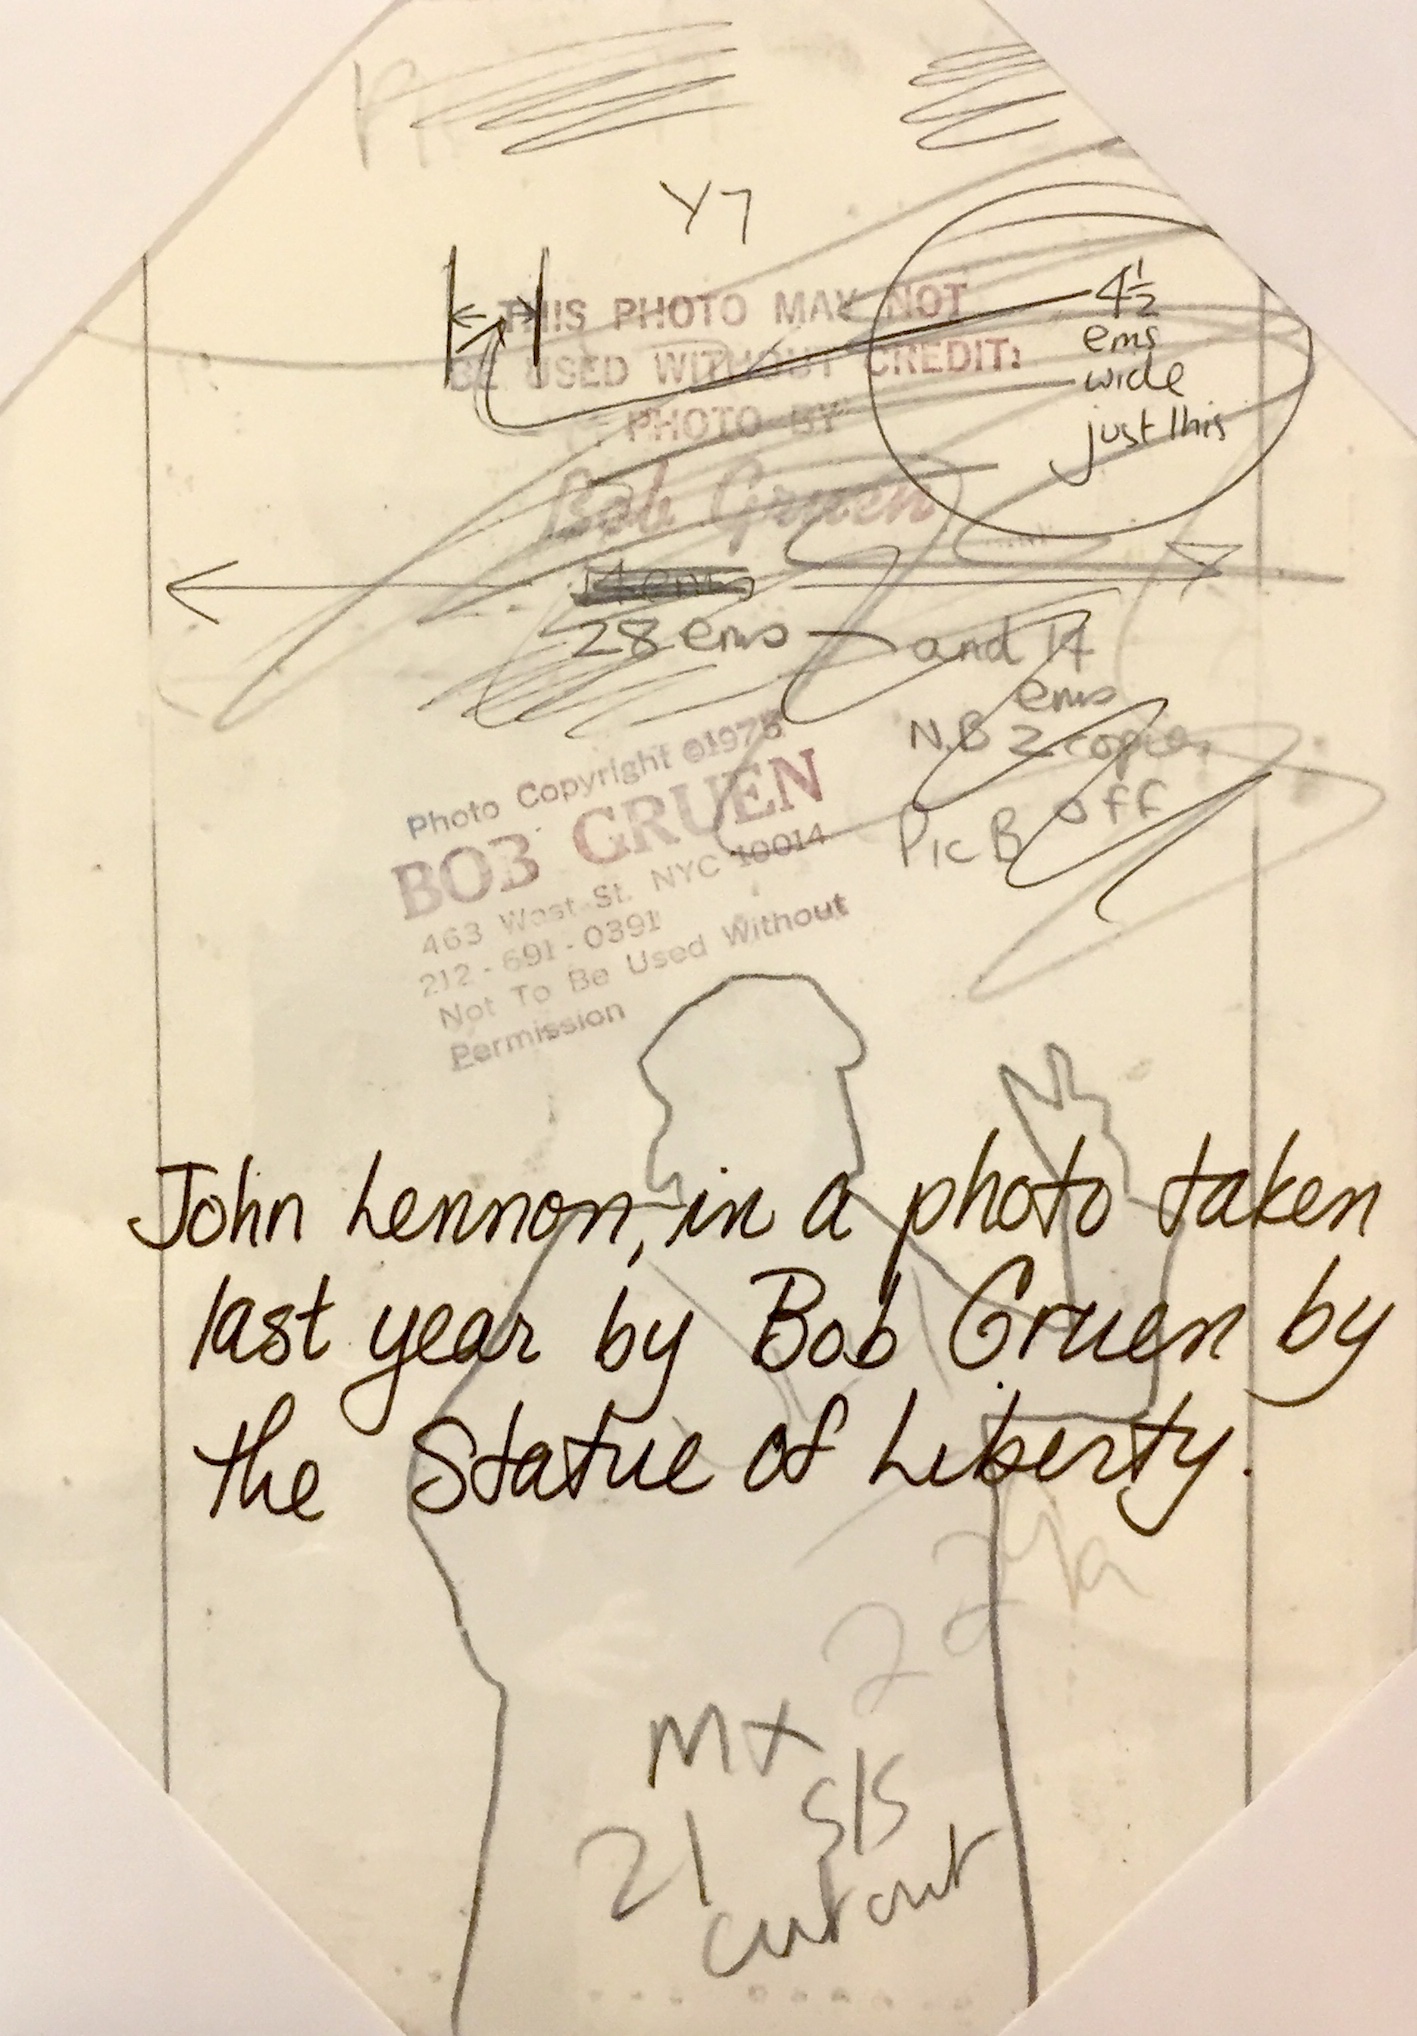 Y7
THIS PHOTO MAY NOT
BE USED WITHOUT CREDIT:
PHOTO BY
Bob Gruen
4½
ems
wide
just this
14 ems
28 ems and 14
ems
N.B 2 copies
off
Pic B
Photo Copyright ©1975
BOB GRUEN
463 West St. NYC 10014
212-691-0391
Not To Be Used Without
Permission
John Lennon, in a photo taken
last year by Bob Gruen by
the Statue of Liberty.
MX
21 S/S
cut out